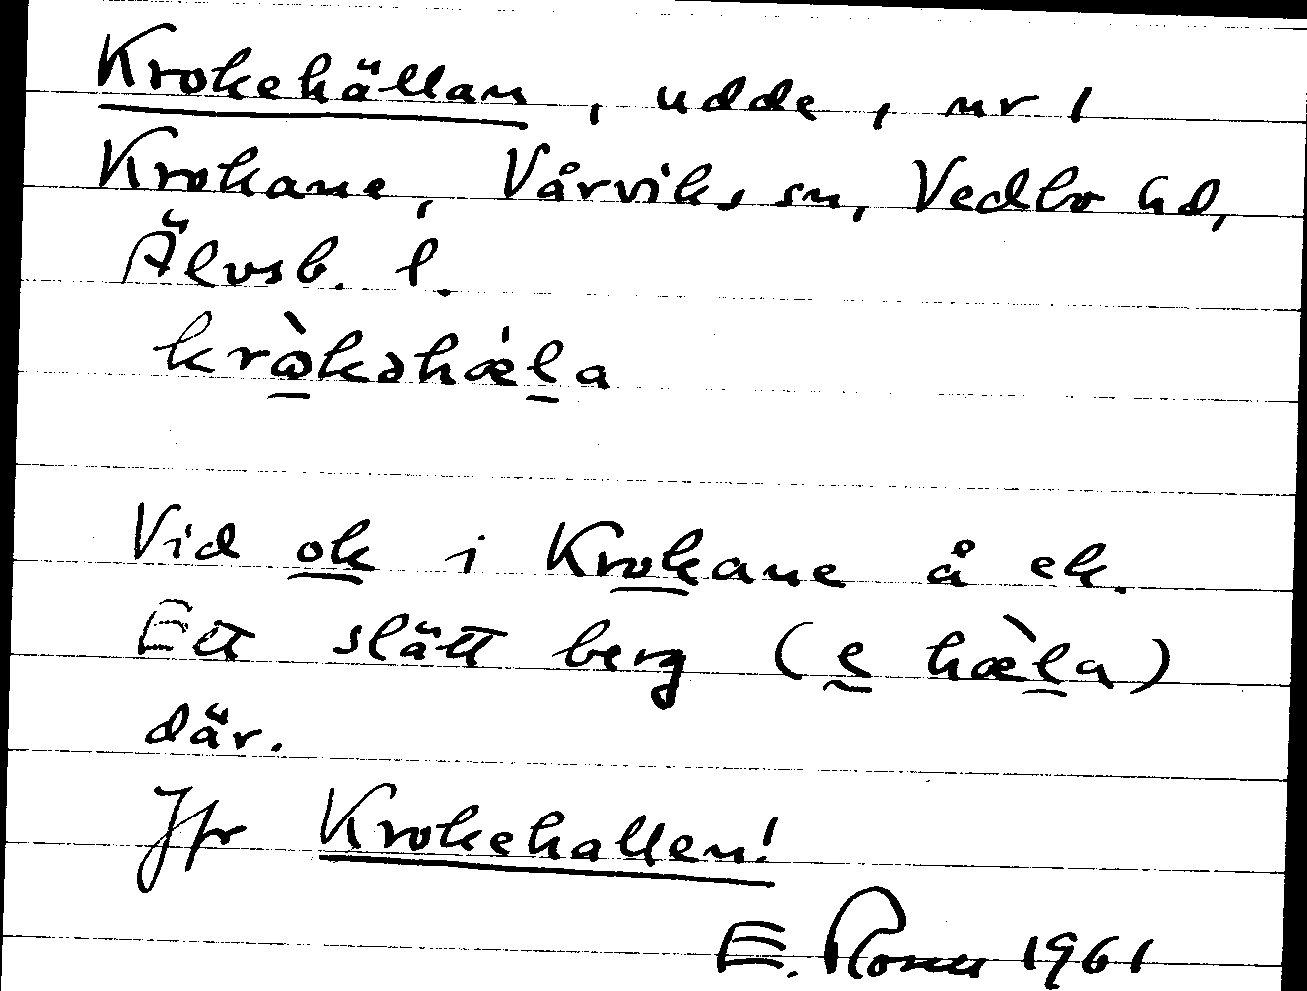 Krokehällan, udde, nr 1
Krokane, Vårviks sn, Vedbo hd,
Älvsb. l.
krὼkəhæ̀l̠a
Vid ok i Krokane å ek.
Ett slätt berg (e̠ hæ̀l̠a)
där.
Jfr Krokehallen!
E. 1961